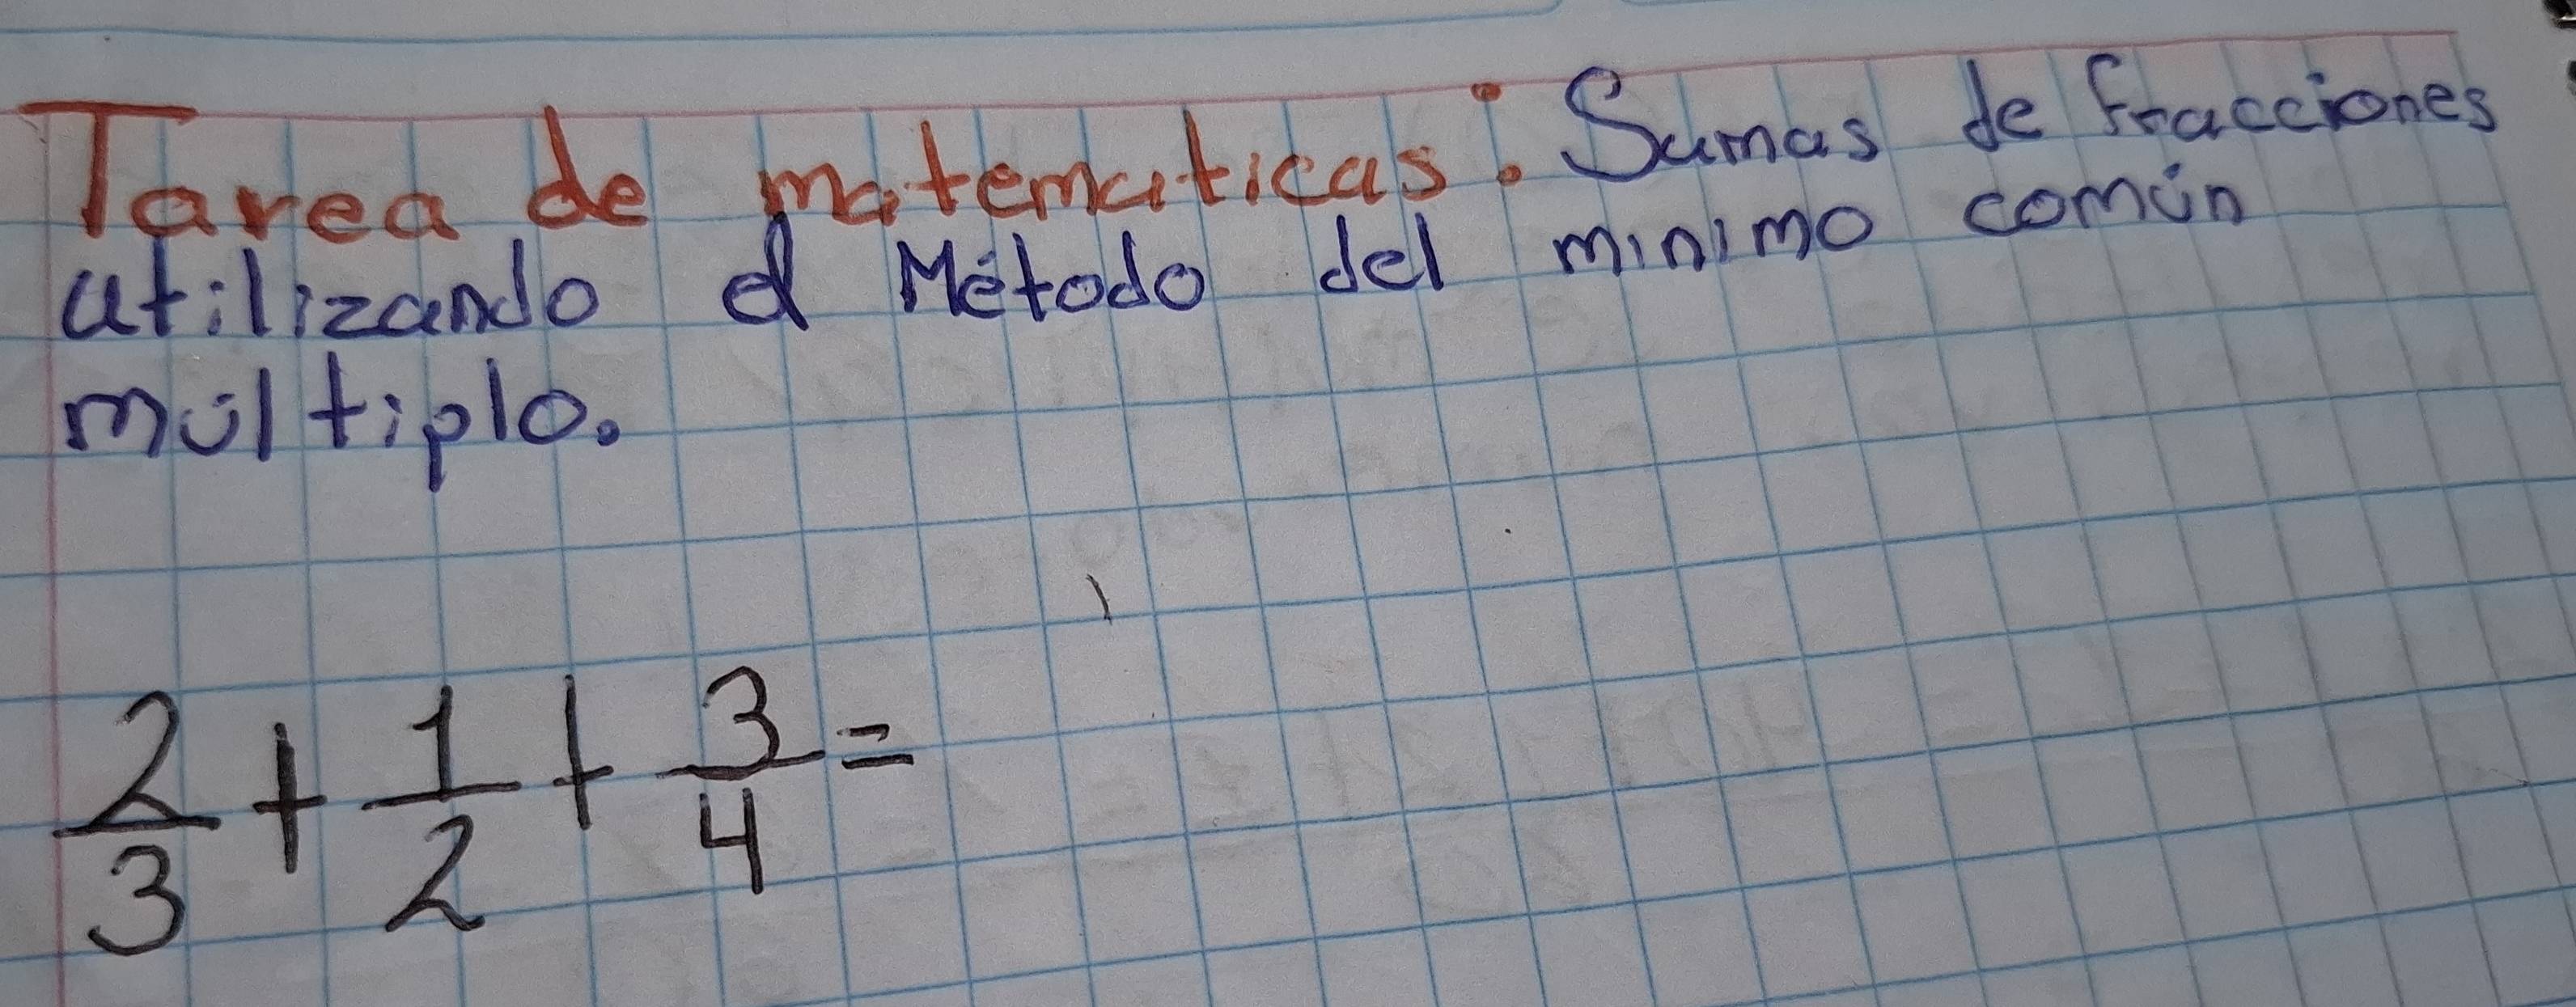 Tarea de matematicas: Sumas de fracciones
utilizando el Método del minimo común
múltiplo.
2/3 + 1/2 + 3/4 =